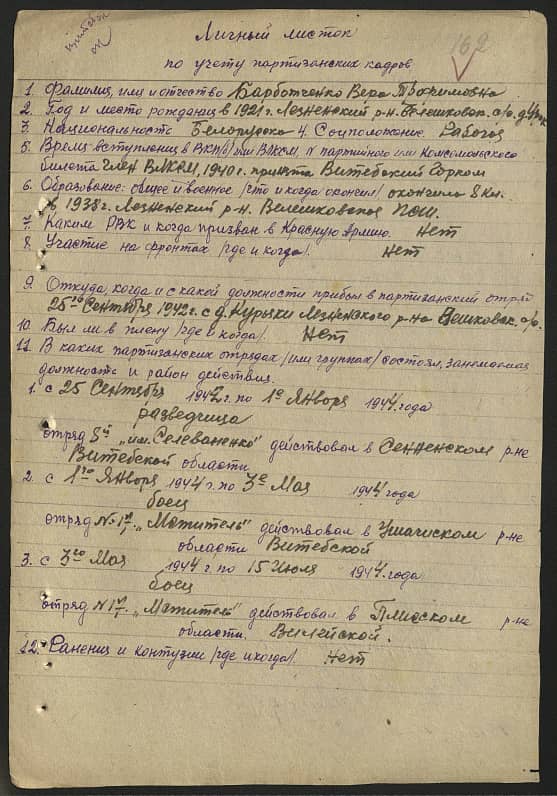 Витебск
ОК
162
Личный листок
по учету партизанских кадров
1. Фамилия, имя и отчество Барботченко Вера Трофимовна
2. Год и место рождения в 1921 г. Лезненский р-н. Велешковск. с/с. д.
3. Национальность Белоруска 4. Соцположение. Рабочая
5. Время вступления в ВКП/б/ или ВЛКСМ, № партийного или Комсомольского
билета Член ВЛКСМ, 1940 г. принята Витебский Горком
6. Образование: общее и военное /что и когда окончил/ окончила 8 кл.
в 1938 г. Лезненский р-н. Велешковская НСШ.
7. Каким РВК и когда призван в Красную Армию. Нет
8. Участие на фронтах /где и когда/. Нет
9. Откуда, когда и с какой должности прибыл в партизанский отряд
25го Сентября 1942 г. с д. Лезненского р-на Вешковск. с/с.
10. Был ли в плену /где и когда/. Нет
11. В каких партизанских отрядах /или группах/ состоял, занимаемая
должность и район действия.
1. с 25 Сентября 1942 г. по 1е Января 1944 года
разведчица
отряд 8й „им. Селеваненко" действовал в Сенненском р-не
Витебской области
2. с 1го Января 1944 г. по 3е Мая 1944 года
боец
отряд № 1й, „Мститель" действовал в Ушачиском р-не
области Витебской
3. с 3го Мая 1944 г по 15 Июля 1944 года
боец
отряд № 1й. „Мститель" действовал в Плисском р-не
области. Вилейской.
12. Ранения и контузии /где и когда/. Нет